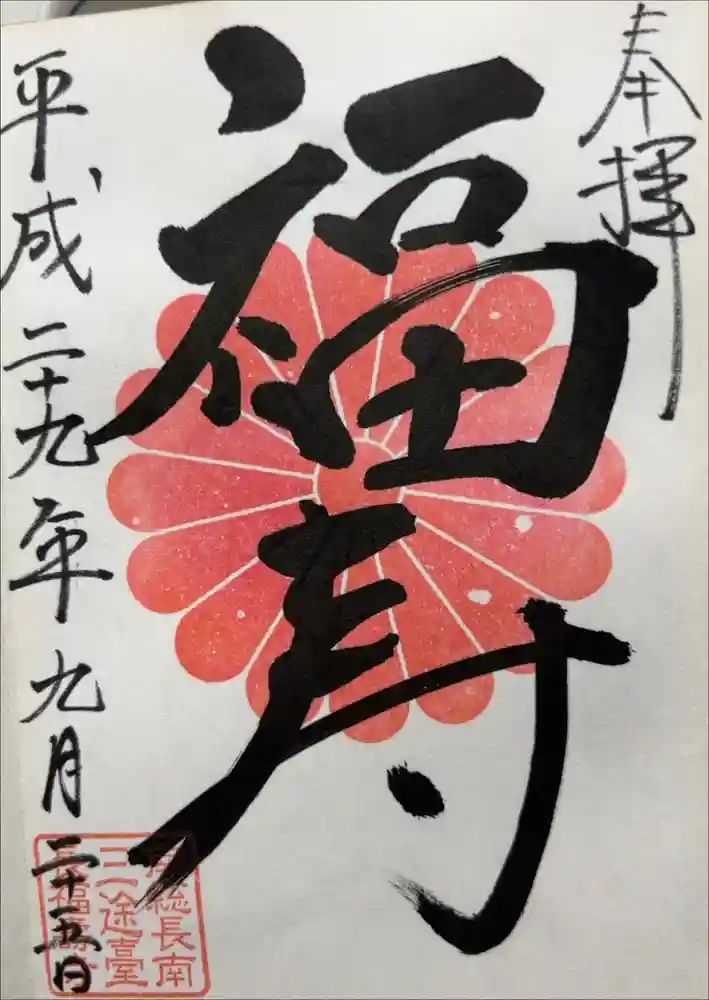 奉拝
福寿
平成二十九年九月二十五日
総長南
三途臺
長福壽